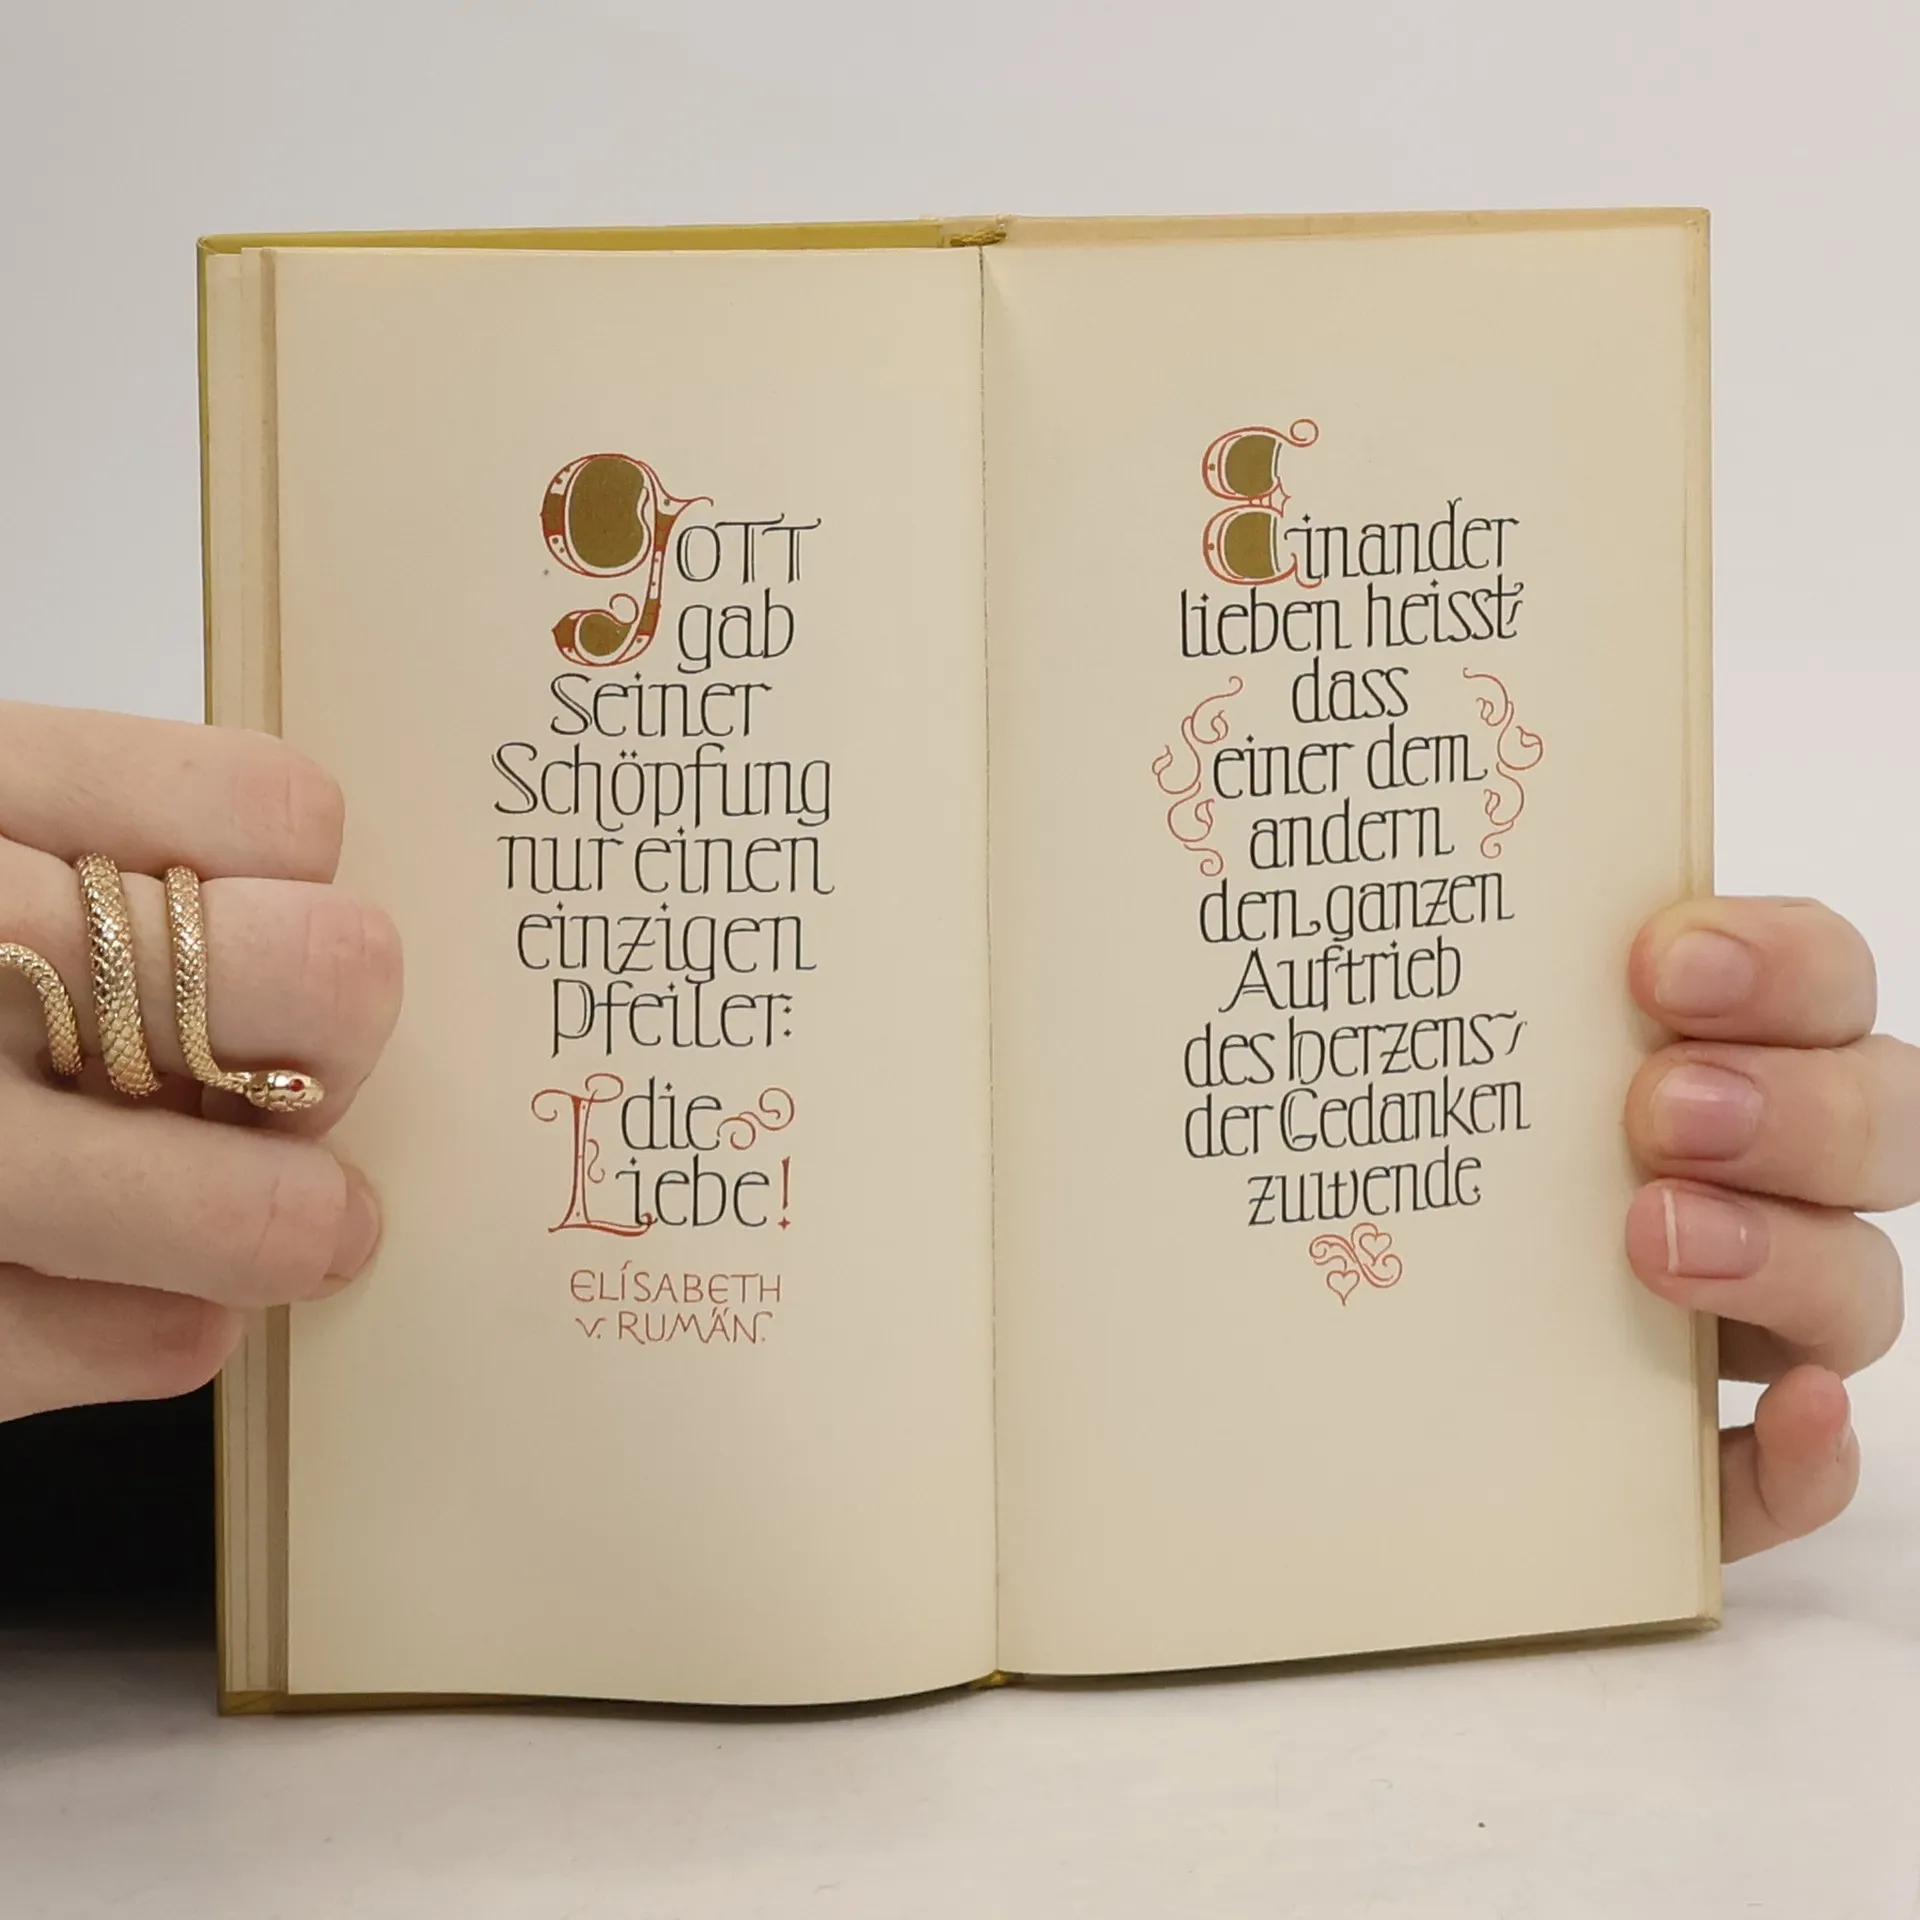 Gott
gab
seiner
Schöpfung
nur einen
einzigen
Pfeiler:
die
Liebe!
ELÍSABETH
v. RUMÄN.
Einander
lieben heisst
dass
einer dem
andern
den ganzen
Auftrieb
des herzens,
der Gedanken
zuwende